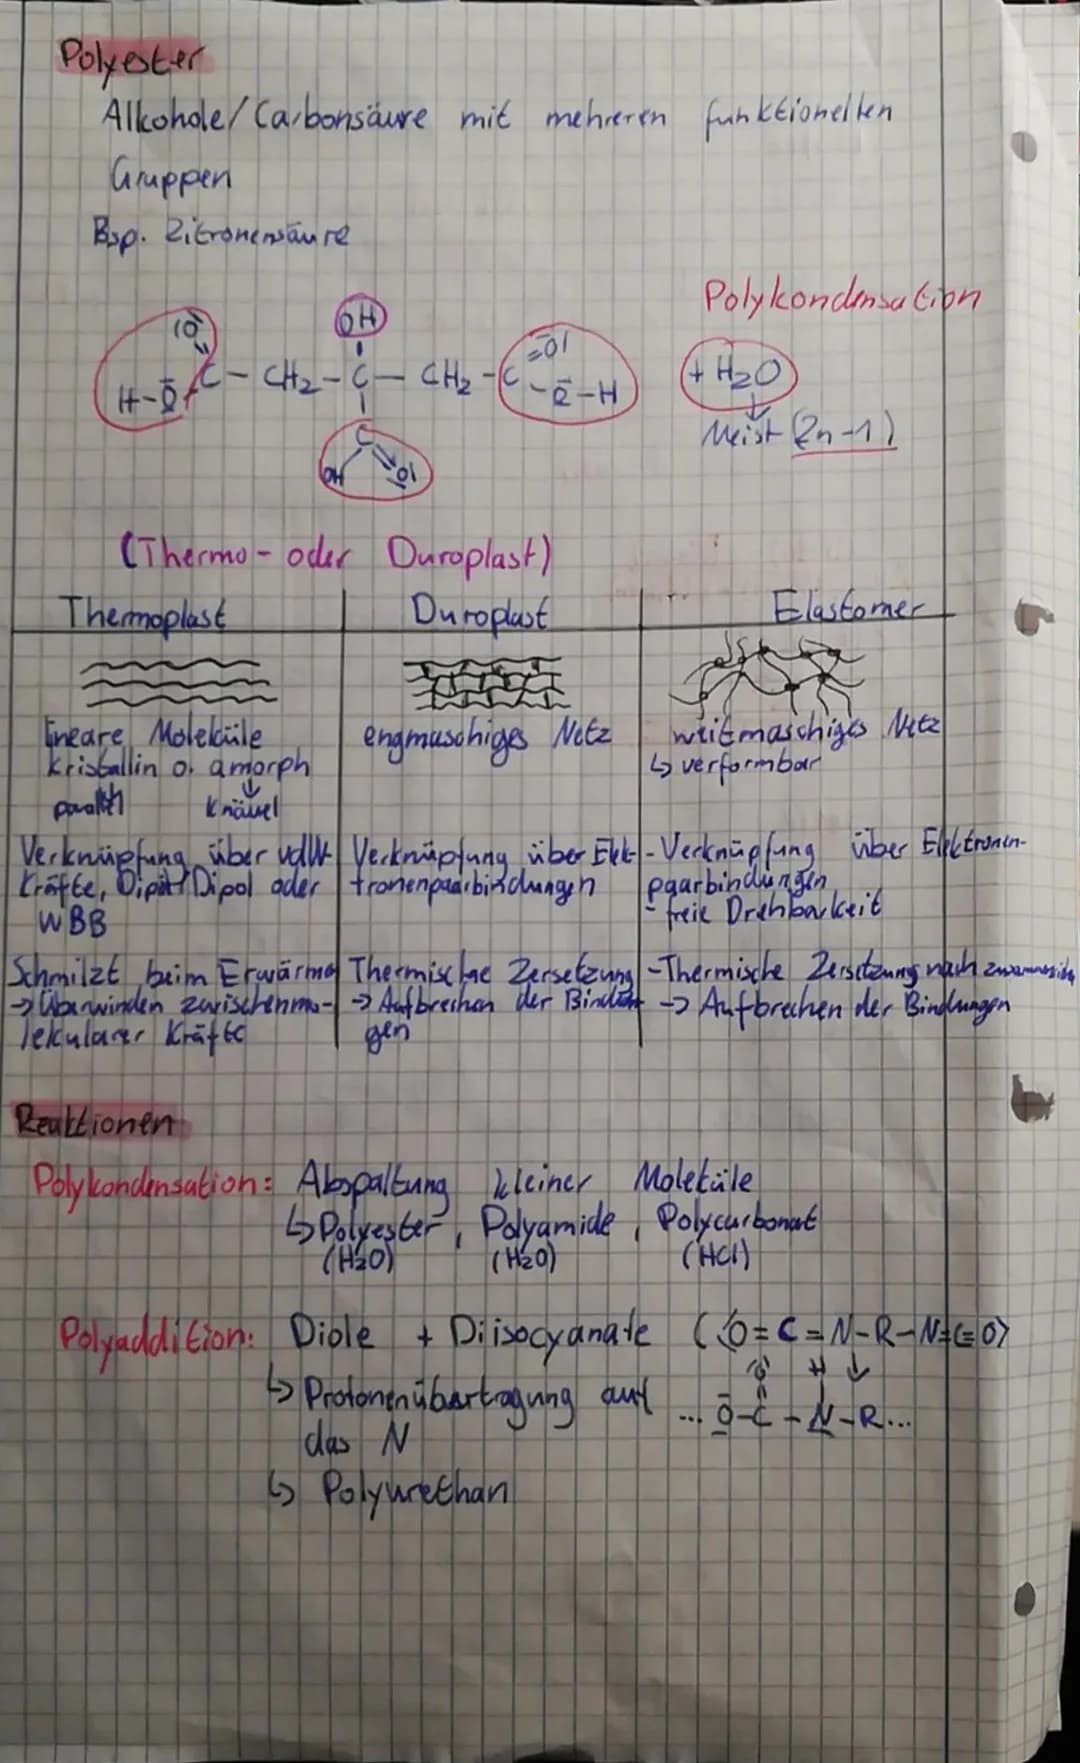 Polyester
Alkohole/Carbonsäure mit mehreren funktionellen
Gruppen
Bsp. Zitronensäure
Polykondensation
H-O C - CH2 - C - CH2 - C - O - H
OH
OH
+ H2O
Meist (2n-1)
(Thermo- oder Duroplast)
Thermoplast Duroplast Elastomer
lineare Moleküle
kristallin o. amorph
parallel Knäuel
engmaschiges Netz
weitmaschiges Netz
↳ verformbar
Verknüpfung über vdW-
Kräfte, Dipol/Dipol oder
WBB
Verknüpfung über Elek-
tronenpaarbindungen
- Verknüpfung über Elektronen-
paarbindungen
- freie Drehbarkeit
Schmilzt beim Erwärmen
→ Überwinden zwischenmo-
lekularer Kräfte
Thermische Zersetzung
→ Aufbrechen der Bindun
gen
- Thermische Zersetzung nach
→ Aufbrechen der Bindungen
Reaktionen
Polykondensation: Abspaltung kleiner Moleküle
↳ Polyester, Polyamide, Polycarbonat
(H2O) (H2O) (HCl)
Polyaddition: Diole + Diisocyanate (O=C=N-R-N=C=O)
↳ Protonenübertragung auf
das N
O H ↓
... O-C-N-R...
↳ Polyurethan